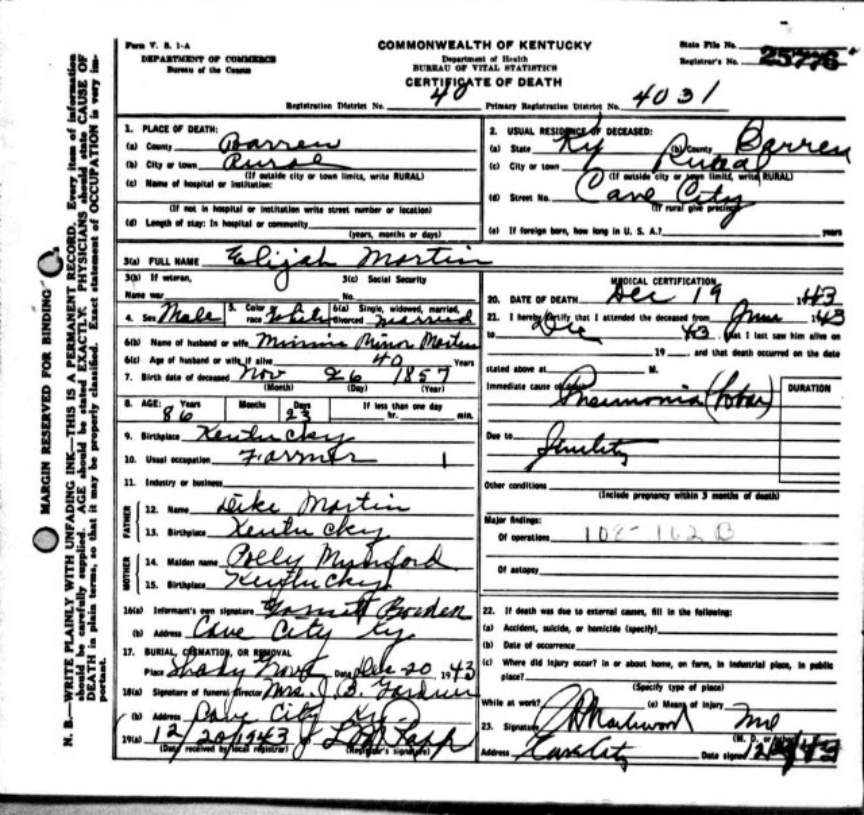 Form V. S. 1-A
DEPARTMENT OF COMMERCE
Bureau of the Census
COMMONWEALTH OF KENTUCKY
Department of Health
BUREAU OF VITAL STATISTICS
CERTIFICATE OF DEATH
State File No. 25776
Registrar's No.
Registration District No. 40 Primary Registration District No. 4031
N. B.—WRITE PLAINLY WITH UNFADING INK—THIS IS A PERMANENT RECORD. Every item of information
should be carefully supplied. AGE should be stated EXACTLY. PHYSICIANS should state CAUSE OF
DEATH in plain terms, so that it may be properly classified. Exact statement of OCCUPATION is very im-
portant.
MARGIN RESERVED FOR BINDING
1. PLACE OF DEATH:
(a) County Barren
(b) City or town Rural
(If outside city or town limits, write RURAL)
(c) Name of hospital or institution:
(If not in hospital or institution write street number or location)
(d) Length of stay: In hospital or community
(years, months or days)
2. USUAL RESIDENCE OF DECEASED:
(a) State Ky (b) County Barren
(c) City or town Rural
(If outside city or town limits, write RURAL)
(d) Street No. Cave City
(If rural give precinct)
(e) If foreign born, how long in U. S. A.? years
3(a) FULL NAME Elijah Martin
3(b) If veteran,
Name war
3(c) Social Security
No.
4. Sex Male 5. Color or race White 6(a) Single, widowed, married, divorced married
6(b) Name of husband or wife Minnie Minor Martin
6(c) Age of husband or wife if alive 40 Years
7. Birth date of deceased Nov 26 1857
(Month) (Day) (Year)
8. AGE: Years 86 Months Days 23 If less than one day
hr. min.
9. Birthplace Kentucky
10. Usual occupation Farmer
11. Industry or business
FATHER
12. Name Dike Martin
13. Birthplace Kentucky
MOTHER
14. Maiden name Polly Mumford
15. Birthplace Kentucky
16(a) Informant's own signature Garnett Bowden
(b) Address Cave City Ky
17. BURIAL, CREMATION, OR REMOVAL
Place Shady Grove Date Dec 20, 1943
18(a) Signature of funeral director Mrs. J. B. Gardner
(b) Address Cave City Ky.
19(a) 12/20/1943
(Date received by local registrar) (Registrar's signature)
MEDICAL CERTIFICATION
20. DATE OF DEATH Dec 19 1943
21. I hereby certify that I attended the deceased from June 1943
to Dec 43, that I last saw him alive on
19 , and that death occurred on the date
stated above at M.
Immediate cause of death Pneumonia (lobar)
DURATION
Due to Senility
Other conditions
(Include pregnancy within 3 months of death)
Major findings:
Of operations 108- 162 B
Of autopsy
22. If death was due to external causes, fill in the following:
(a) Accident, suicide, or homicide (specify)
(b) Date of occurrence
(c) Where did injury occur? In or about home, on farm, in industrial place, in public
place?
(Specify type of place)
While at work? (e) Means of injury
23. Signature MD
(M. D. or other)
Address Cave City Date signed